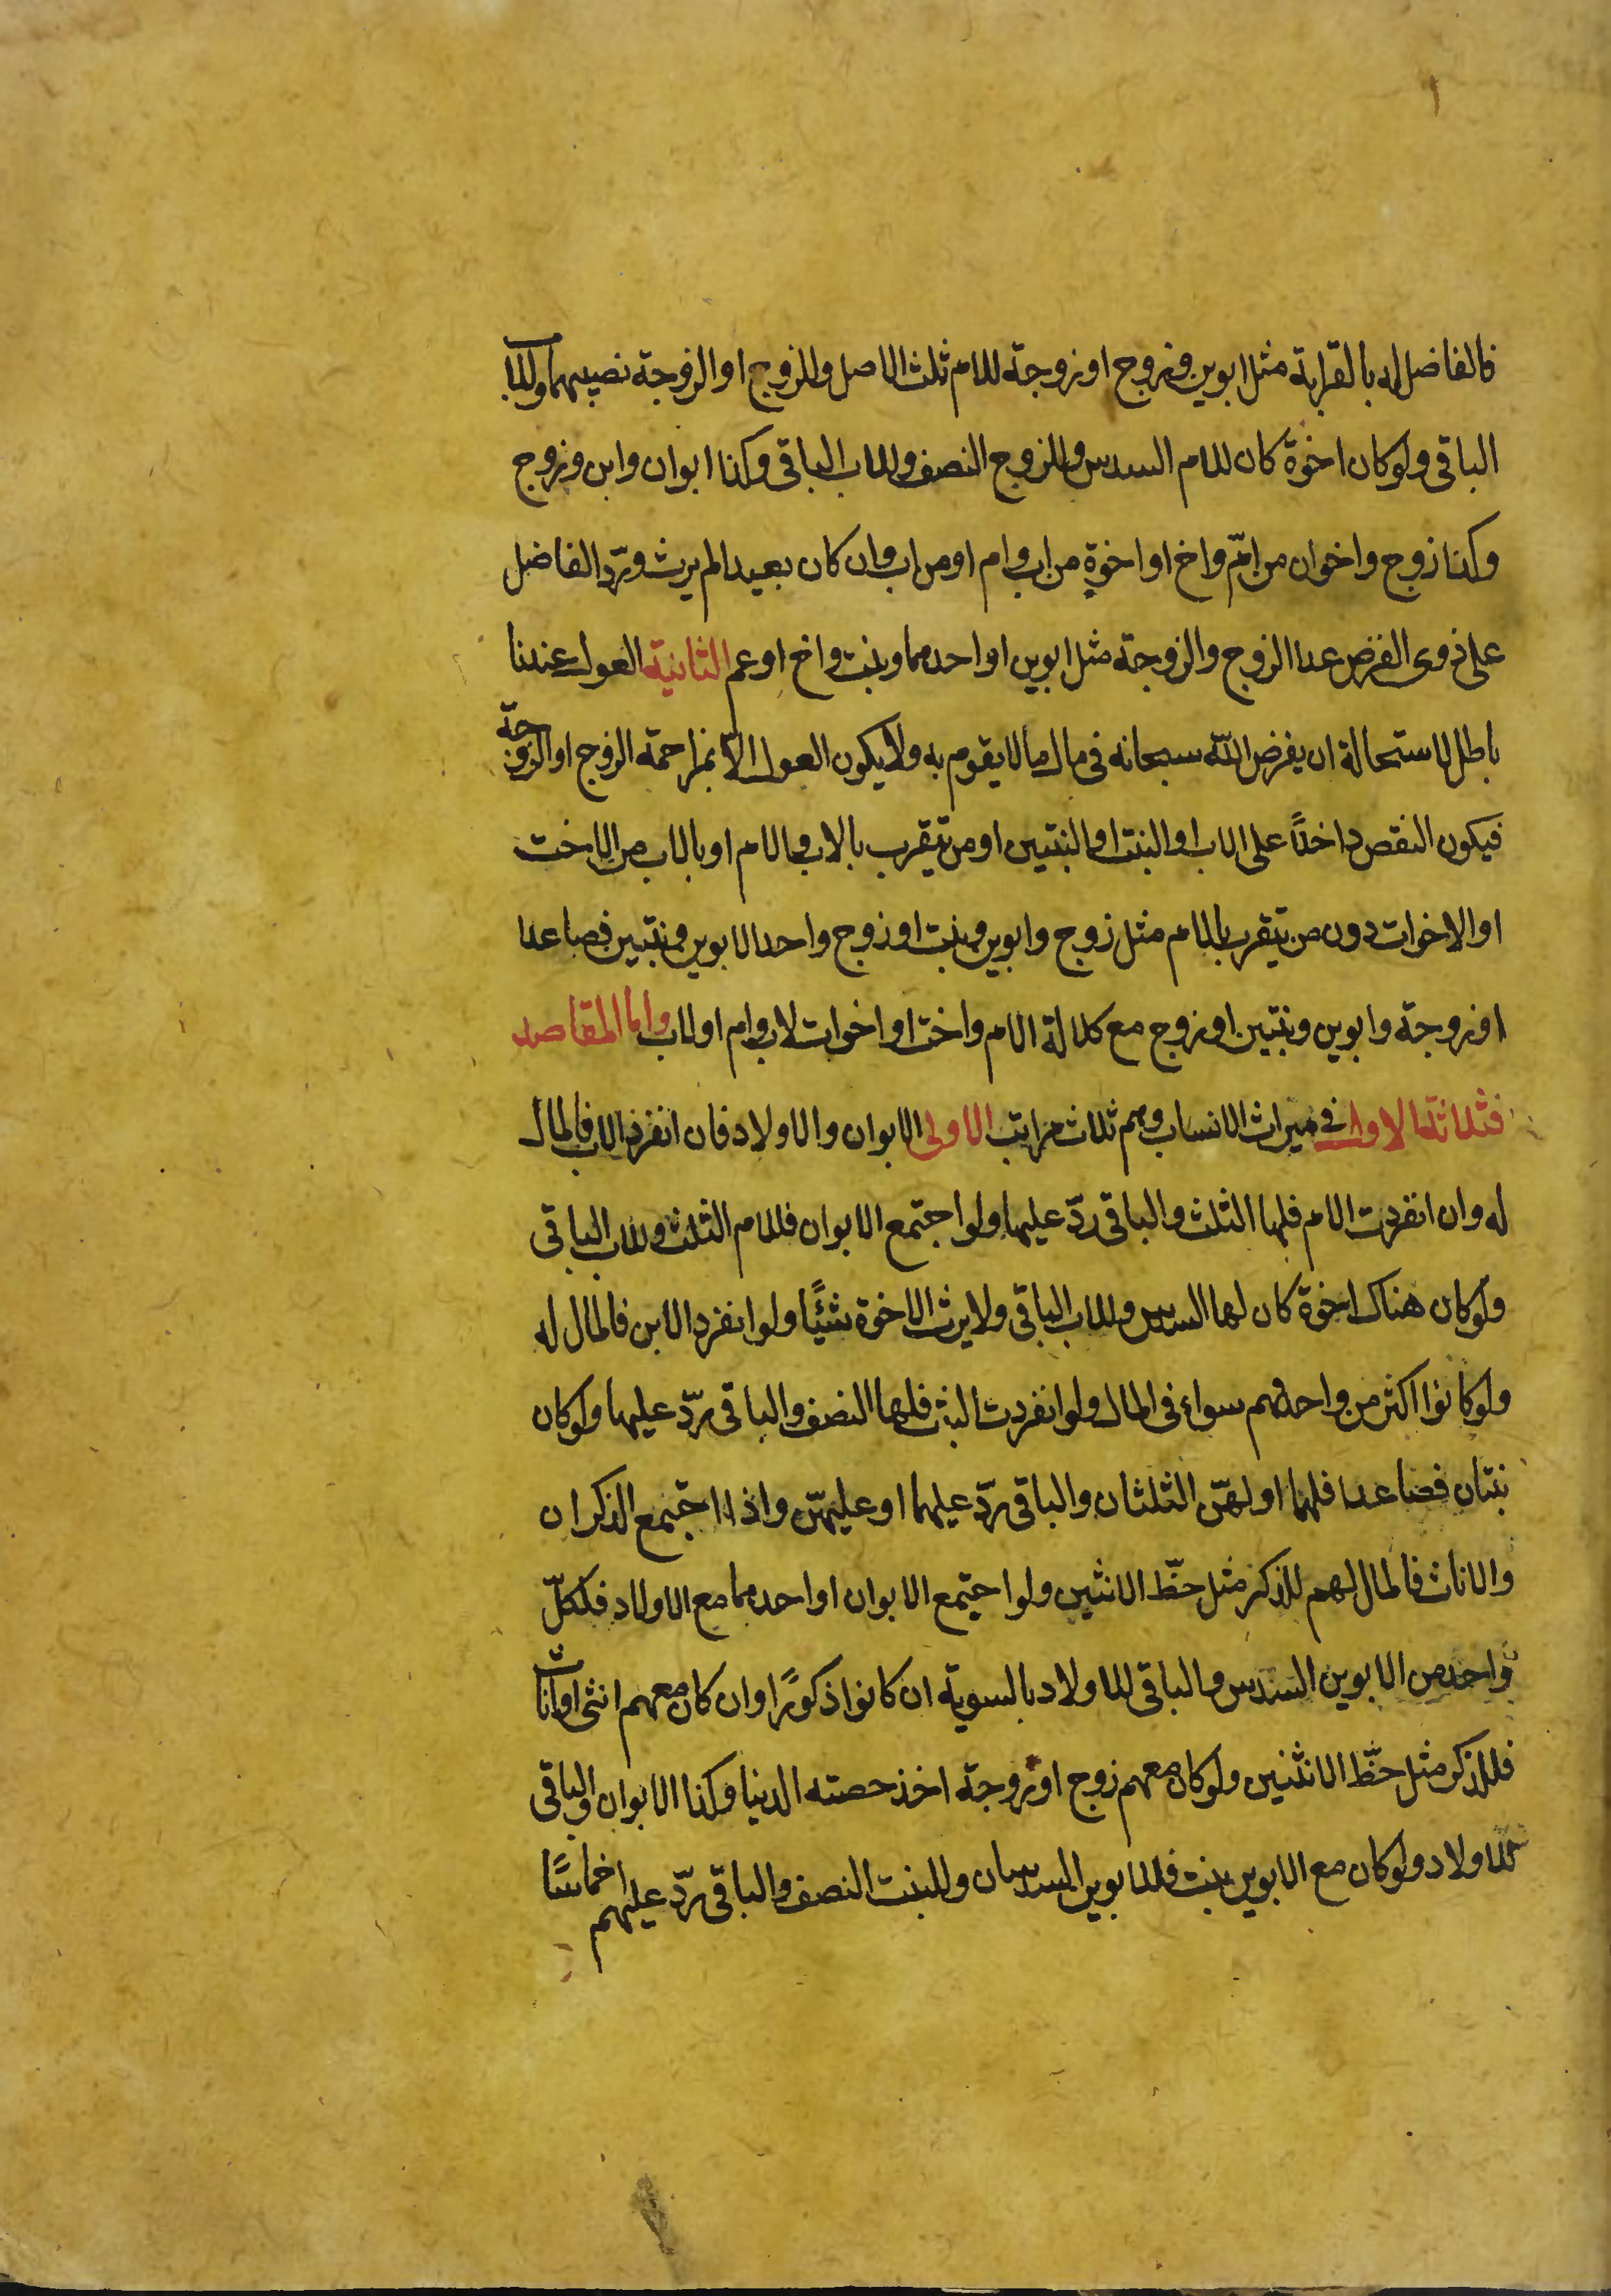 فالفاضل له بالقرابة مثل ابوين وزوج او زوجة للام ثلث الاصل وللزوج او الزوجة نصيبهما وللاب
الباقى ولو كان اخوة كان للام السدس وللزوج النصف وللاب الباقى وكذا ابوان وابن وزوج
وكذا زوج واخوان من امّ واخ او اخوة من اب وام او من اب وان كان بعيدا لم يرث وردّ الفاضل
على ذوى الفرض عدا الزوج والزوجة مثل ابوين او احدهما وبنت واخ او عم الثانية العول عندنا
باطل لاستحالة ان يفرض اللّه سبحانه فى مال ما لا يقوم به ولا يكون العول الّا بمزاحمة الزوج او الزوجة
فيكون النقص داخلًا على الاب او البنت او البنتين او من يتقرب بالاب والام او بالاب من الاخت
او الاخوات دون من يتقرب بالام مثل زوج وابوين وبنت او زوج واحد الابوين وبنتين فصاعدا
او زوجة وابوين وبنتين او زوج مع كلالة الام واخت او اخوات لاب وام او لاب واما المقاصد
فثلاثة الاول فى ميراث الانساب وهم ثلاث مراتب الاولى الابوان والاولاد فان انفرد الاب فالمال
له وان انفردت الام فلها الثلث والباقى ردّ عليها ولو اجتمع الابوان فللام الثلث وللاب الباقى
ولو كان هناك اخوة كان لها السدس وللاب الباقى ولا يرث الاخوة شيئًا ولو انفرد الابن فالمال له
ولو كانوا اكثر من واحد فهم سواء فى المال ولو انفردت البنت فلها النصف والباقى يردّ عليها ولو كان
بنتان فصاعدا فلهما او لهنّ الثلثان والباقى يردّ عليهما او عليهنّ واذا اجتمع الذكران
والاناث فالمال لهم للذكر مثل حظّ الانثيين ولو اجتمع الابوان او احدهما مع الاولاد فلكلّ
واحد من الابوين السدس والباقى للاولاد بالسوية ان كانوا ذكورًا وان كان معهم انثى او اناث
فللذكر مثل حظّ الانثيين ولو كان معهم زوج او زوجة اخذ حصته الدنيا وكذا الابوان والباقى
للاولاد ولو كان مع الابوين بنت فللابوين السدسان وللبنت النصف والباقى يردّ عليهم اخماسًا